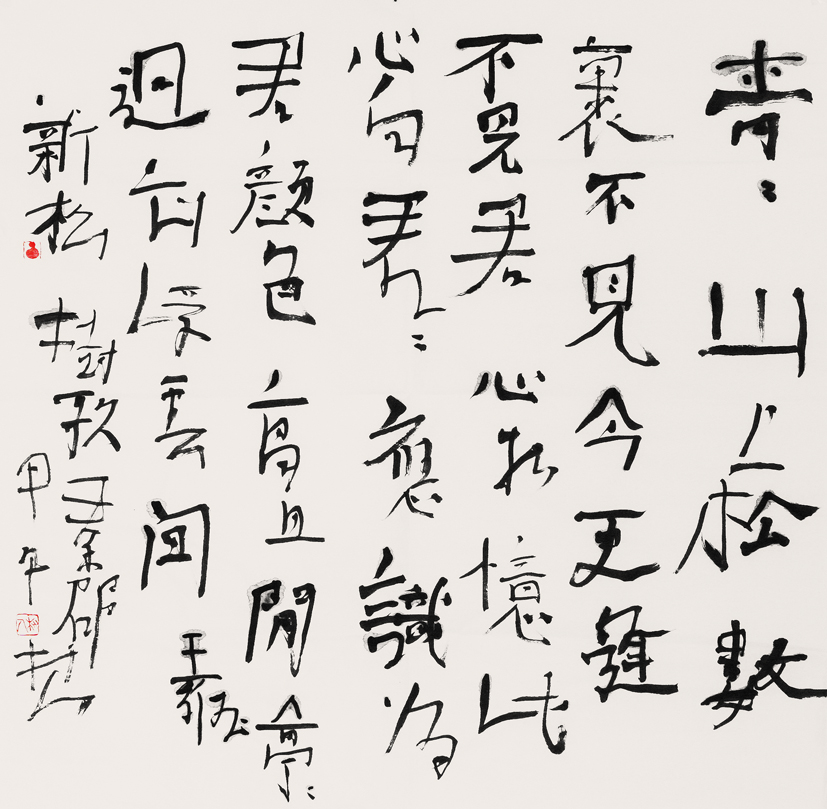 青〻山上松數
裏不見今更逢
不見君心相憶此
心向君〻應識為
君顏色高且閒亭〻
迥出浮雲間 王
新松樹歌
甲午